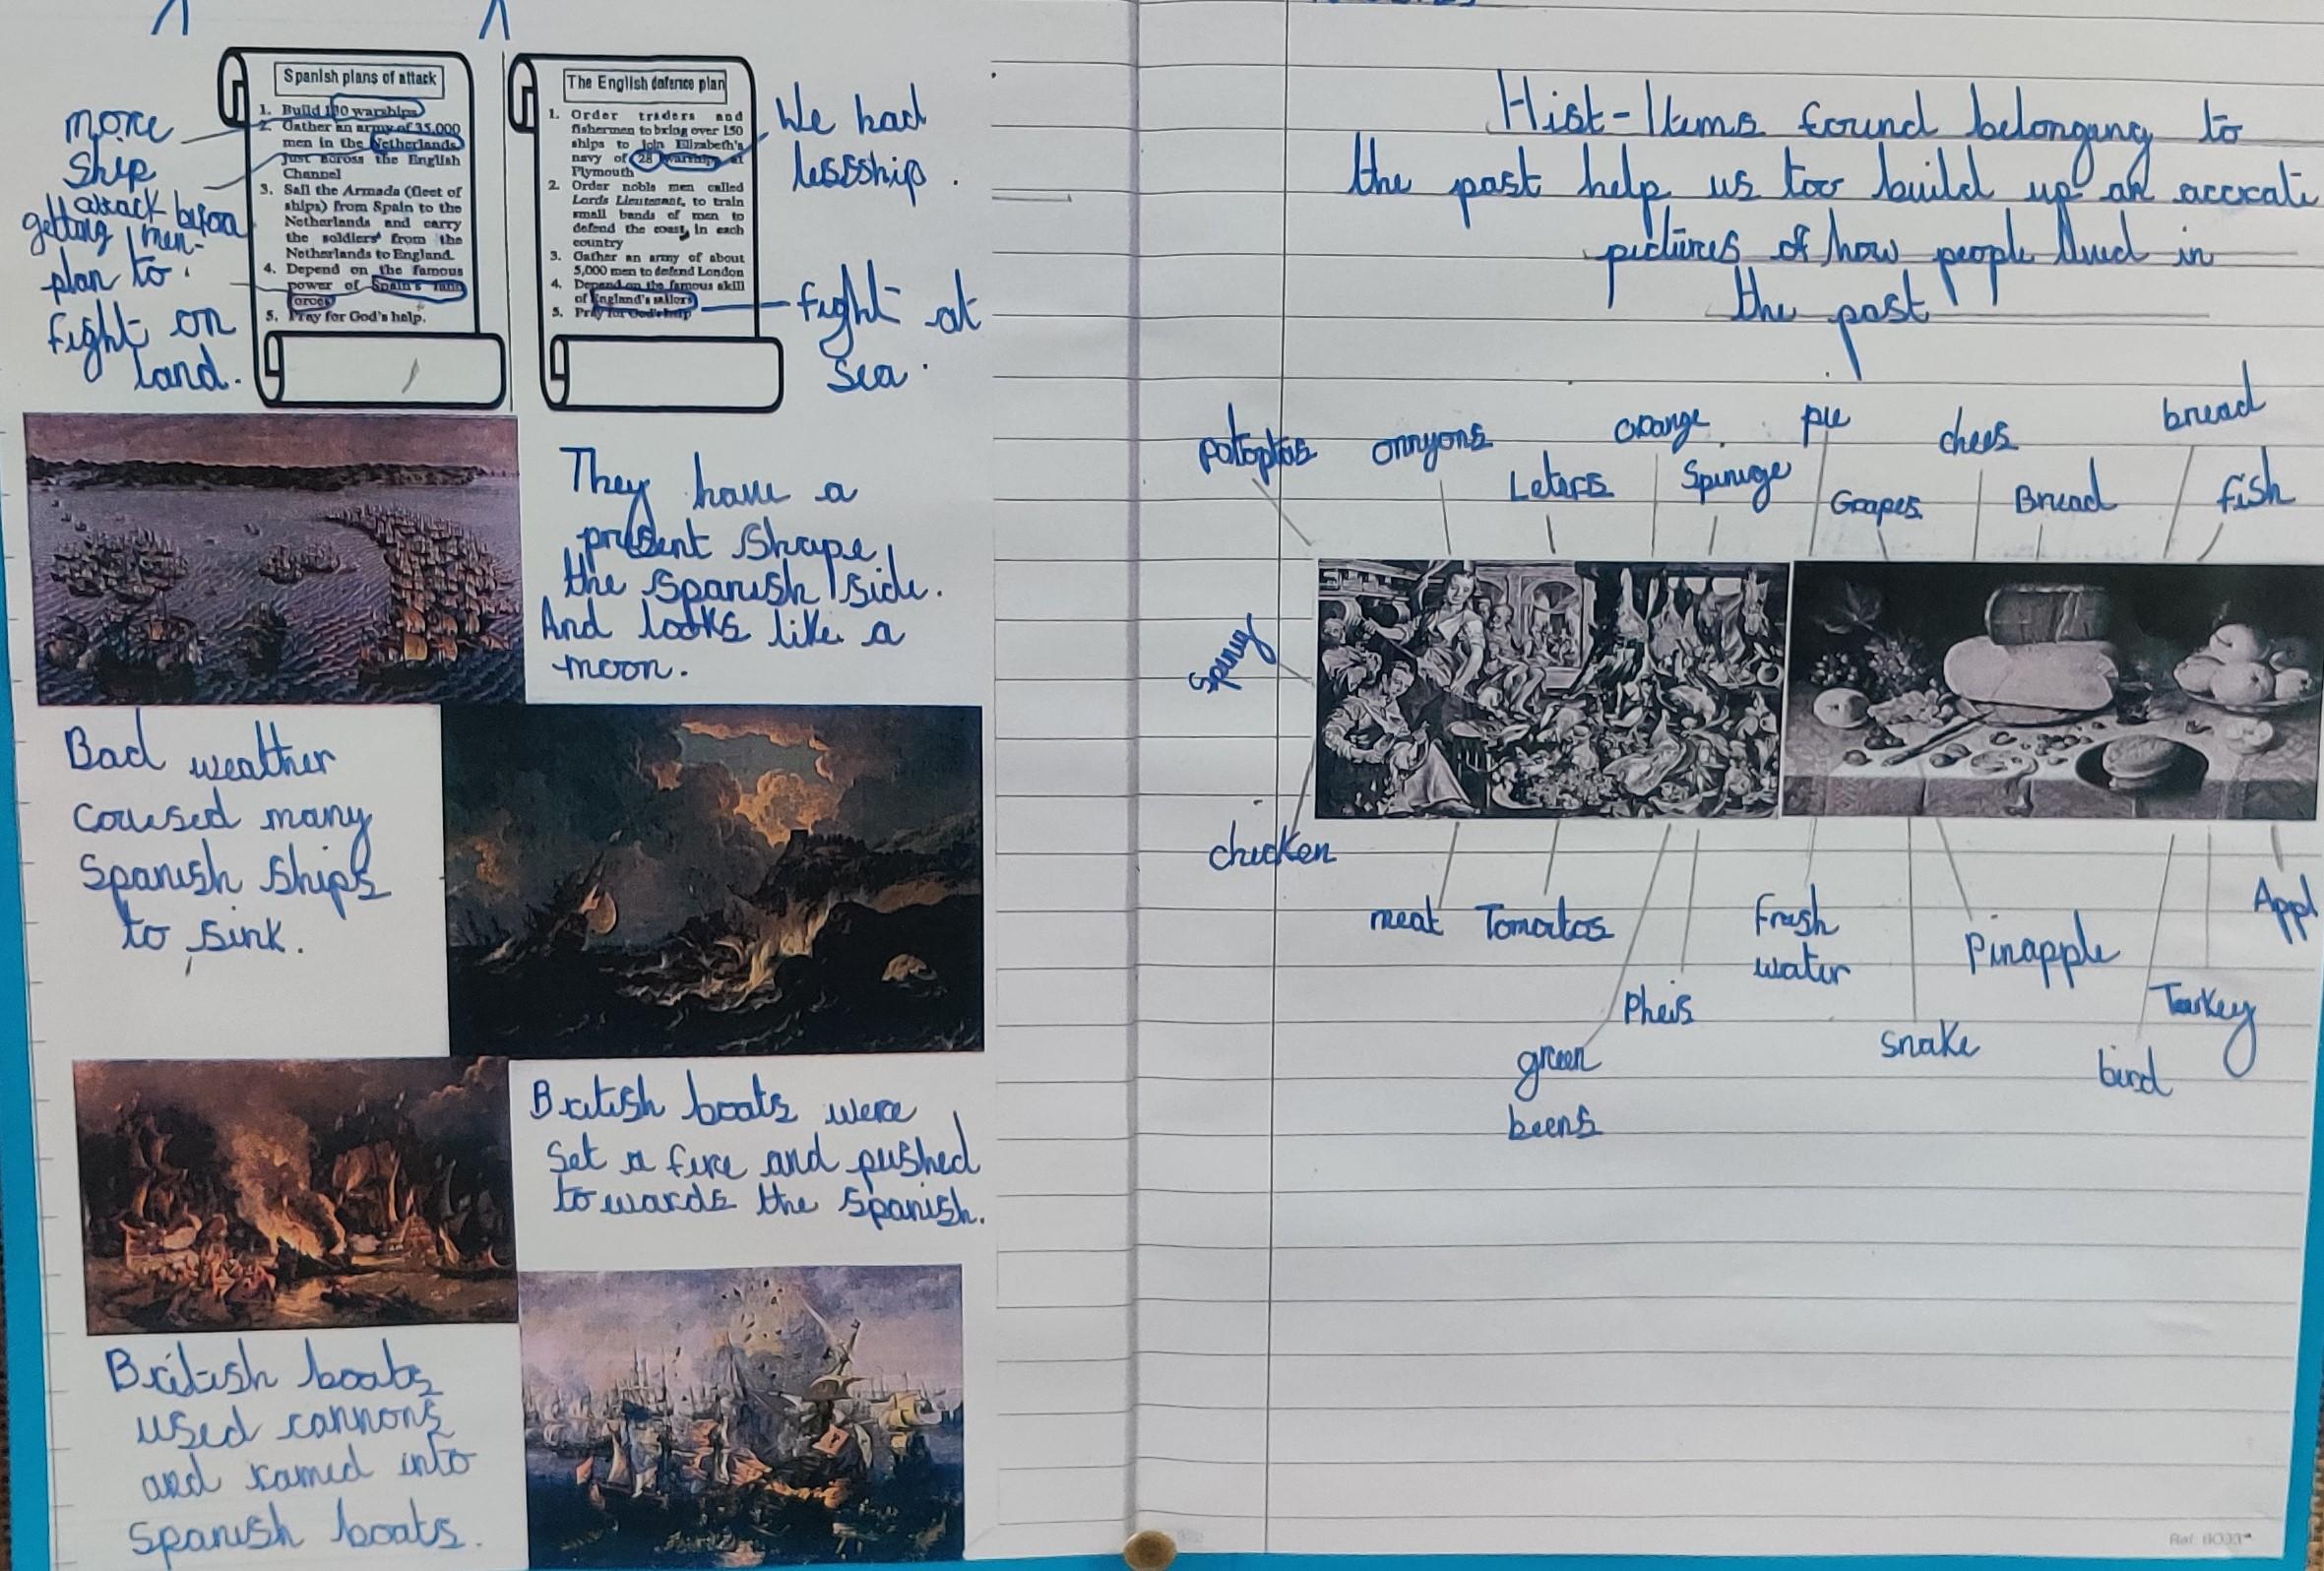 Spanish plans of attack
1. Build 130 warships
2. Gather an army of 35,000
men in the Netherlands
just across the English
Channel
3. Sail the Armada (fleet of
ships) from Spain to the
Netherlands and carry
the soldiers from the
Netherlands to England.
4. Depend on the famous
power of Spain's land
forces
5. Pray for God's help.
more
ship
attack before
getting men.
plan to
fight on
land.
The English defence plan
1. Order traders and
fishermen to bring over 150
ships to join Elizabeth's
navy of 28 warships at
Plymouth
2. Order noble men called
Lords Lieutenant, to train
small bands of men to
defend the coast, in each
country
3. Gather an army of about
5,000 men to defend London
4. Depend on the famous skill
of England's sailors
5. Pray for God's help
We had
lessship.
fight at
sea.
They have a
present shape
the spanish side.
And looks like a
moon.
Bad weather
coused many
Spanish ships
to sink.
British boats were
set a fire and pushed
towards the spanish.
British boats
used cannons
and ramed into
spanish boats.
Hist-Items found belonging to
the past help us too build up an accrate
pictures of how people lived in
the past
onnyons
orange
pie
chees
bread
Leters
Spinige
Grapes
Bread
fish
Spinig
chicken
meat
Tomatos
Fresh
water
Pinapple
Appl
Pheis
Turkey
green
beens
snake
bird